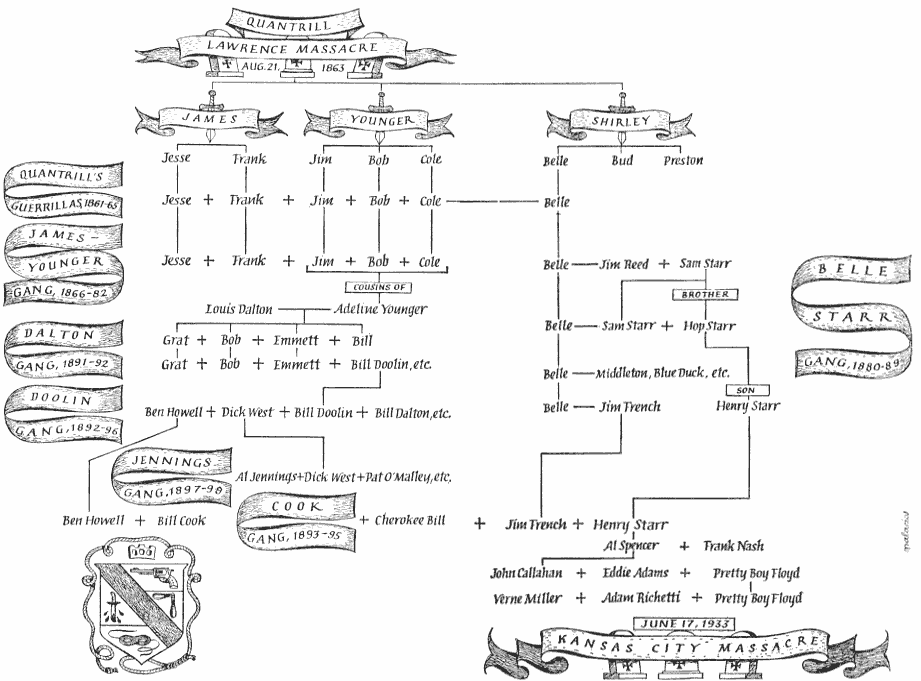 QUANTRILL
LAWRENCE MASSACRE
AUG. 21, 1863
JAMES YOUNGER SHIRLEY
Jesse Frank Jim Bob Cole Belle Bud Preston
QUANTRILL'S
GUERRILLAS, 1861-65
Jesse + Frank + Jim + Bob + Cole Belle
JAMES-
YOUNGER
GANG, 1866-82
Jesse + Frank + Jim + Bob + Cole Belle Jim Reed + Sam Starr
BELLE
STARR
GANG, 1880-89
COUSINS OF
BROTHER
Louis Dalton Adeline Younger
Belle Sam Starr + Hop Starr
DALTON
GANG, 1891-92
Grat + Bob + Emmett + Bill
Grat + Bob + Emmett + Bill Doolin, etc.
Belle Middleton, Blue Duck, etc.
SON
DOOLIN
GANG, 1892-96
Ben Howell + Dick West + Bill Doolin + Bill Dalton, etc. Belle Jim Trench Henry Starr
JENNINGS
GANG, 1897-98
Al Jennings + Dick West + Pat O'Malley, etc.
COOK
GANG, 1893-95
Ben Howell + Bill Cook + Cherokee Bill + Jim Trench + Henry Starr
Al Spencer + Frank Nash
John Callahan + Eddie Adams + Pretty Boy Floyd
Verne Miller + Adam Richetti + Pretty Boy Floyd
JUNE 17, 1933
KANSAS CITY MASSACRE